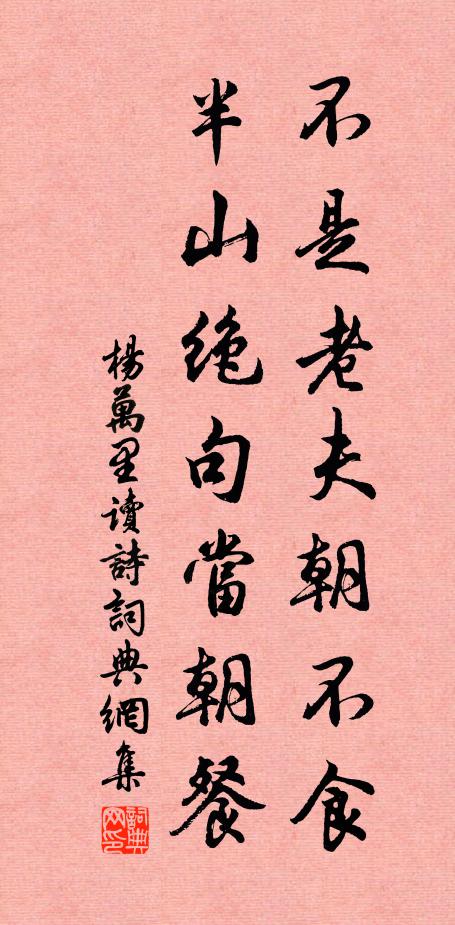 不是老夫朝不食
半山绝句當朝餐
楊萬里讀詩詞典網集
詞典网印